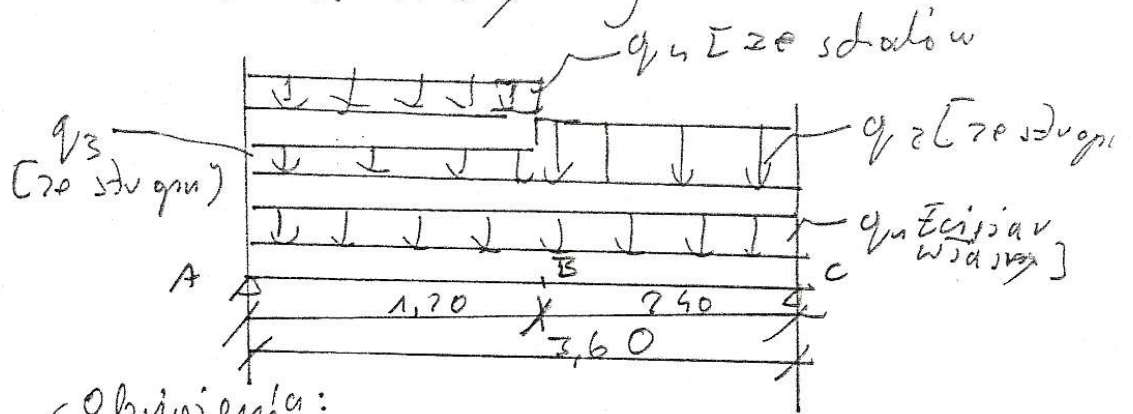 q₄ [ze schodów
q₃
[ze stropu]
q₂ [ze stropu
q₁ [ciężar
własny]
A B C
1,20 2,40
3,60
Obciążenia: